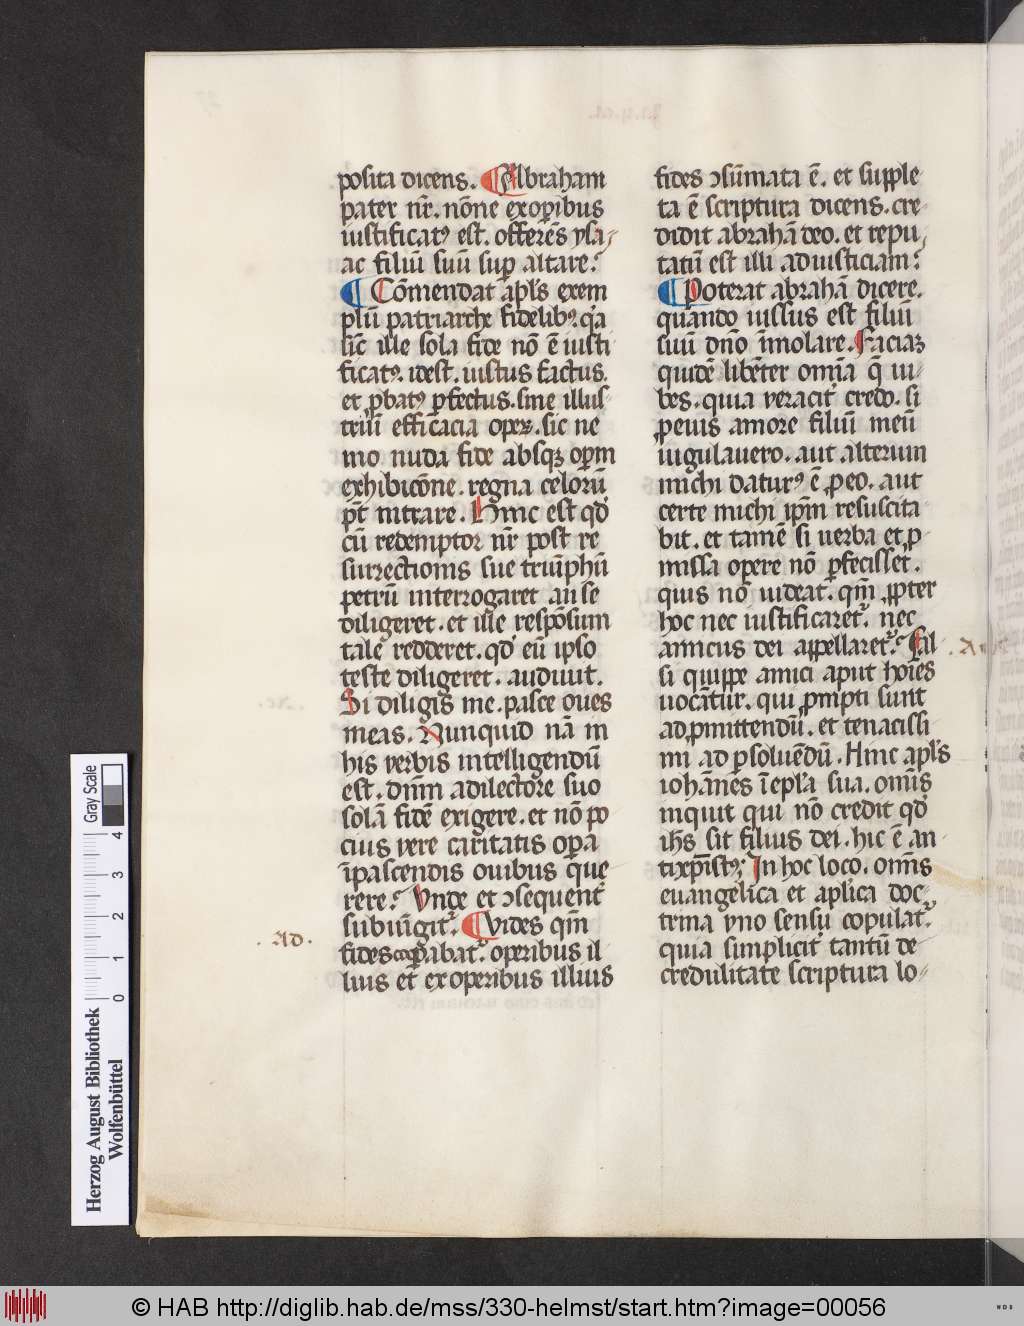 posita dicens. Abraham
pater nr̄. nōne exoꝑibus
iustificatꝰ est. offerēs ysa
ac filiū suū suꝑ altare.
Cōmendat apl̄s exem
plū patriarche fidelibꝫ. q̄a
sic̄ ille sola fide nō ē iusti
ficatꝰ. idest. iustus factus.
et ꝓbatꝰ ꝑfectus. sine illus
triū efficacia oꝑeꝝ. sic ne
mo nuda fide absqꝫ oꝑm
exhibicōne. regna celorū
pt̄ intrare. Hinc est qd̄
cū redemptor nr̄ post re
surrectionis sue triūphū
petrū interrogaret an se
diligeret. et ille respōsum
tale redderet. qd̄ eū ipso
teste diligeret. audiuit.
Si diligis me. pasce oues
meas. Nunquid nā in
his verbis intelligendū
est. dn̄m adilectore suo
solā fidē exigere. et nō po
cius vere caritatis oꝑa
ī pascendis ouibus que
rere? Vnde et ↄsequent̄
subiūgit᷑. Vides qm̄
fides cooꝑabat᷑. operibus il
lius et exoperibus illius
.Ad.
fides ↄsūmata ē. et supple
ta ē scriptura dicens. cre
didit abrahā deo. et repu
tatū est illi adiusticiam.
Poterat abrahā dicere.
quando iussus est filiū
suū dn̄o īmolare. Faciaꝫ
quidē libēter omīa q̄ iu
bes. quia veracit̄ credo. si
ꝓ eius amore filiū meū
iugulauero. aut alterum
michi daturꝰ ē ꝓ eo. aut
certe michi ip̄m resuscita
bit. et tamē si uerba et ꝓ
missa opere nō ꝑfecisset.
quis nō uideat. qm̄ ꝓpter
hoc nec iustificaret᷑. nec
amicus dei appellaret᷑. Tal
si quippe amici aput hoīes
uocātur. qui ꝓmpti sunt
ad ꝓmittendū. et tenacissi
mi ad ꝑsoluēdū. Hinc apl̄s
iohānes ī epl̄a sua. omīs
inquit qui nō credit qd̄
ihs̄ sit filius dei. hic ē an
tixp̄istꝰ. In hoc loco. omīs
euangelica et aplica doc
trina vno sensu copulat᷑.
quia simplicit̄ tantū de
credulitate scriptura lo
Gray Scale
0 1 2 3 4
Herzog August Bibliothek
Wolfenbüttel
© HAB http://diglib.hab.de/mss/330-helmst/start.htm?image=00056